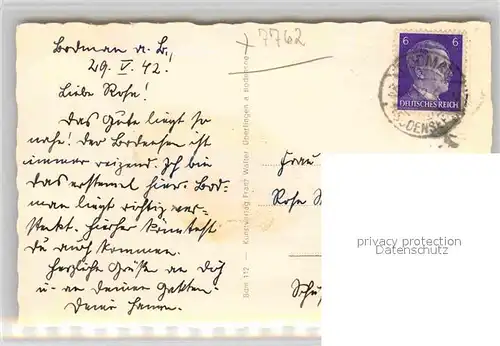 Bodman a. B.,
29. V. 42.
Liebe Rose!
Das Gute liegt so
nahe! Der Bodensee ist
immer reizend. Ich bin
das erstemal hier. Bod-
man liegt richtig ver-
steckt. Hierher könntest
Du auch kommen.
Herzliche Grüße an Dich
u. an Deinen Gatten.
Deine
7762
6 6
DEUTSCHES REICH
Bdm 112 — Kunstverlag Franz Walter, Überlingen a. Bodensee
Frau
Rosa
privacy protection
Datenschutz